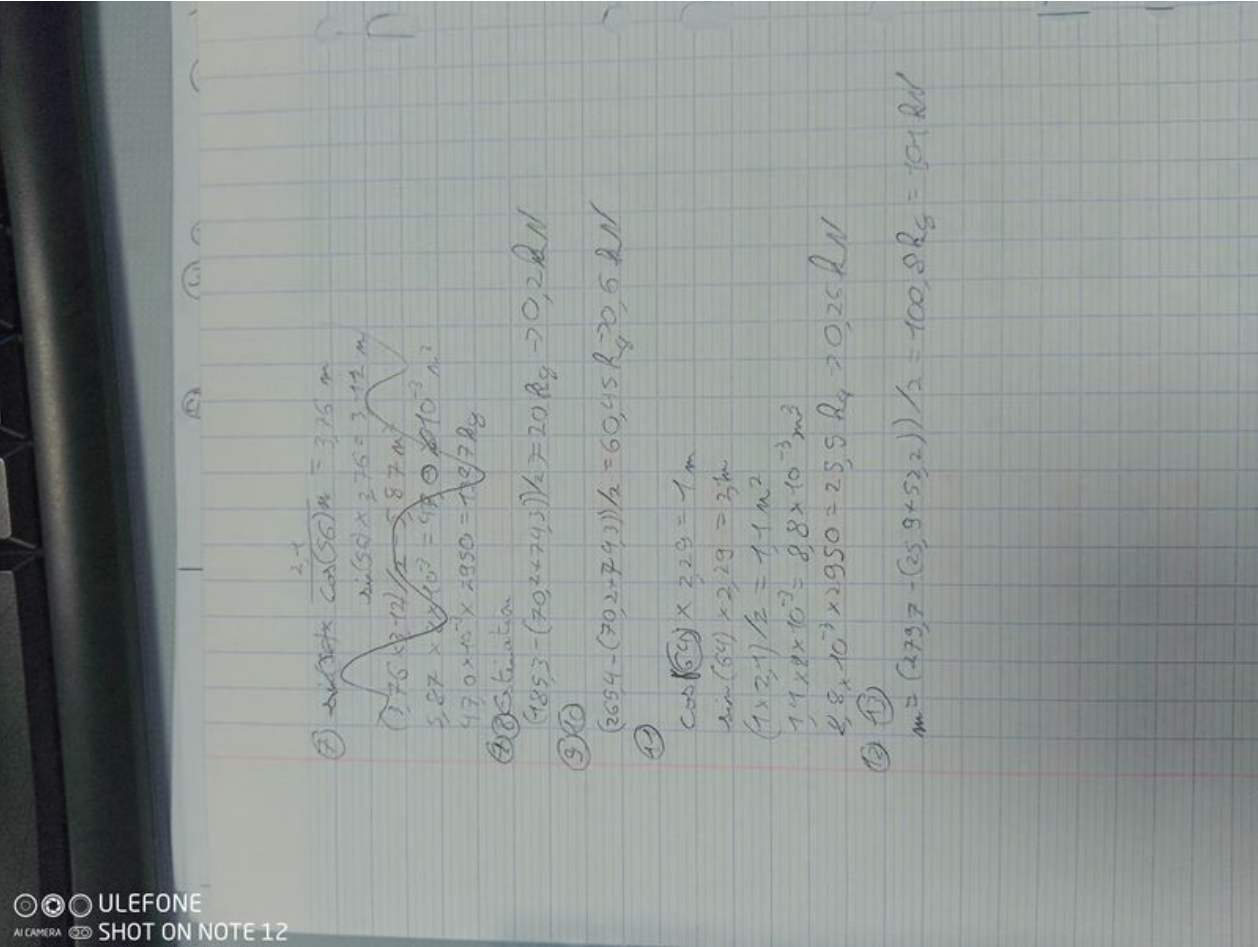 ⑦ 2,1
cos(56) = 3,76 m
sin(56) × 3,76 = 3,12 m
(3,76 × 3,12)/2 = 5,87 m²
5,87 × 10⁻³ = 47,0 10⁻³ m³
47,0 × 10⁻³ × 2950 = kg
⑦⑧ Estimation
(185,3 - (70,2 + 74,3))/2 = 20 kg → 0,2 kN
⑨⑩
(265,4 - (70,2 + 74,3))/2 = 60,45 kg → 0,6 kN
⑪
cos(64) × 2,29 = 1 m
sin(64) × 2,29 = 2,1 m
(1 × 2,1)/2 = 1,1 m²
1,1 × 8 × 10⁻³ = 8,8 × 10⁻³ m³
8,8 × 10⁻³ × 2950 = 25,9 kg → 0,26 kN
⑫ ⑬
m = (279,7 - (25,9 + 52,2))/2 = 100,8 kg = 1,01 kN
ULEFONE
AI CAMERA SHOT ON NOTE 12